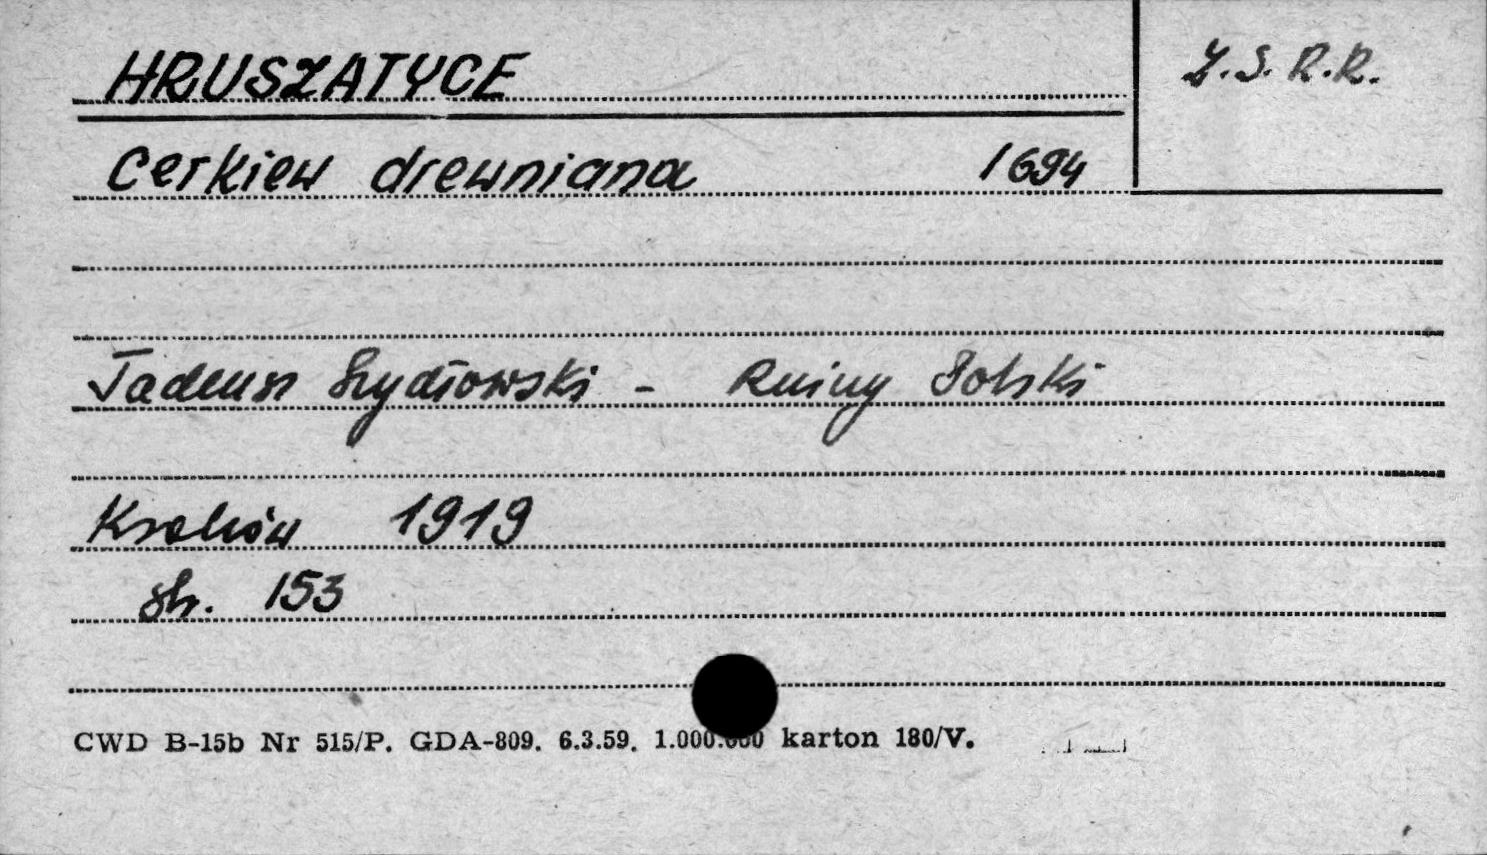 HRUSZATYCE
Z.S.R.R.
Cerkiew drewniana 1694
Tadeusz Szydłowski - Ruiny Polski
Kraków 1919
str. 153
CWD B-15b Nr 515/P. GDA-809. 6.3.59. 1.000.000 karton 180/V.